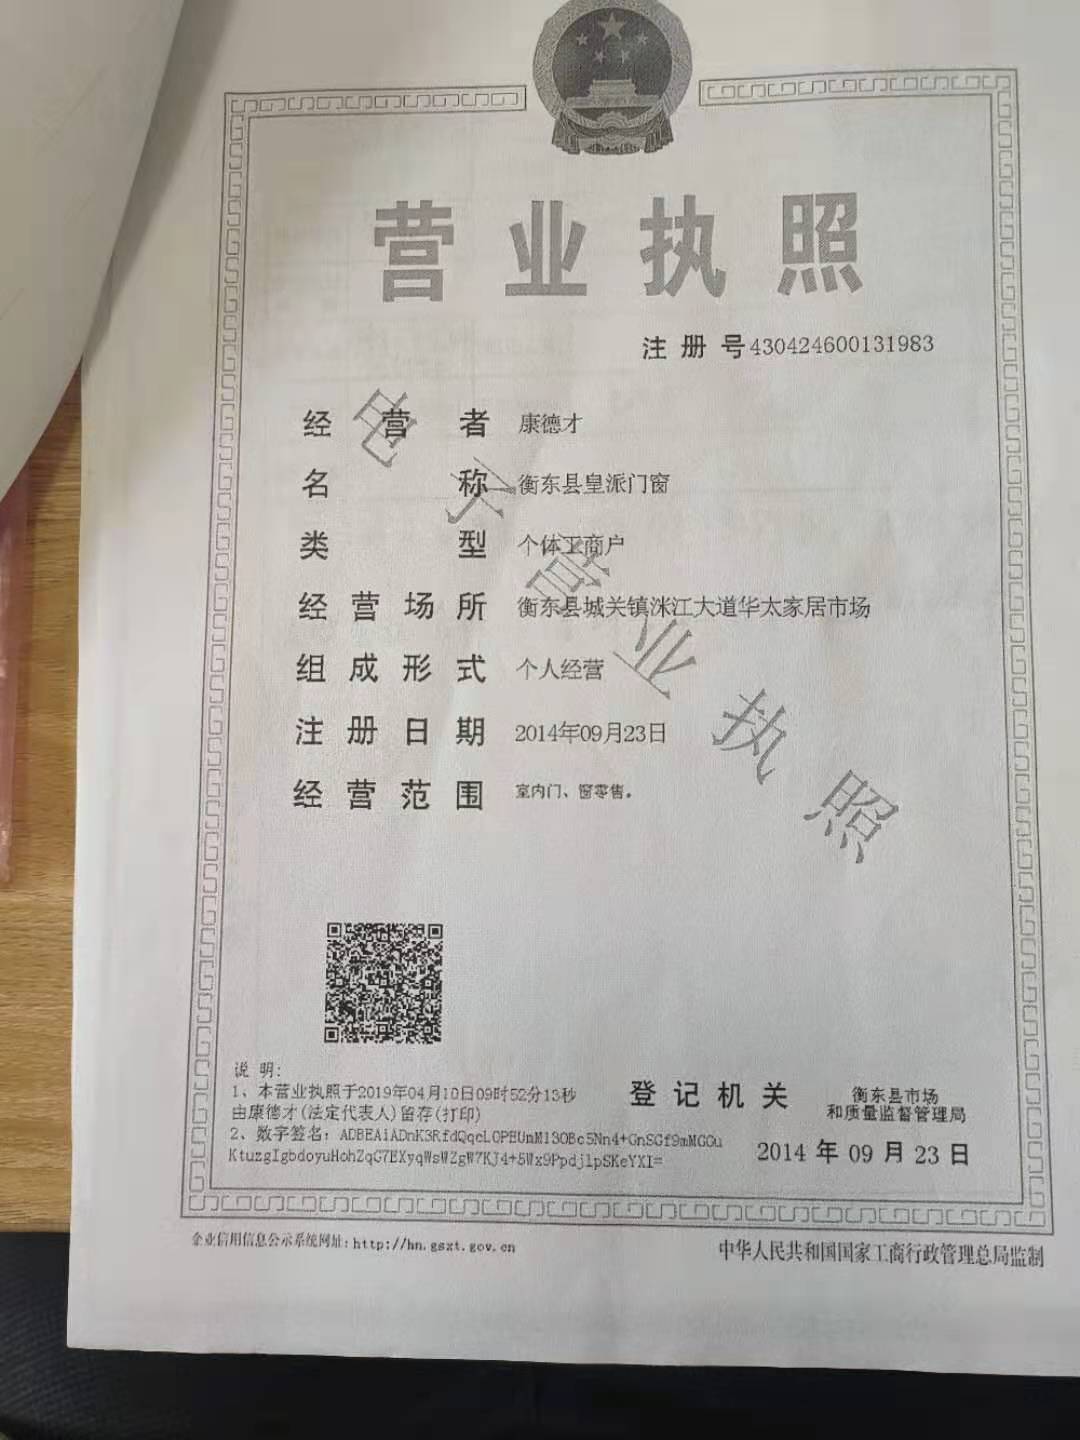 营业执照
注册号430424600131983
经营者 康德才
名称 衡东县皇派门窗
类型 个体工商户
经营场所 衡东县城关镇洣江大道华太家居市场
组成形式 个人经营
注册日期 2014年09月23日
经营范围 室内门、窗零售。
电子营业执照
说明:
1、本营业执照于2019年04月10日09时52分13秒
由康德才(法定代表人)留存(打印)
2、数字签名:
登记机关
衡东县市场
和质量监督管理局
2014年09月23日
企业信用信息公示系统网址:http://hn.gsxt.gov.cn
中华人民共和国国家工商行政管理总局监制